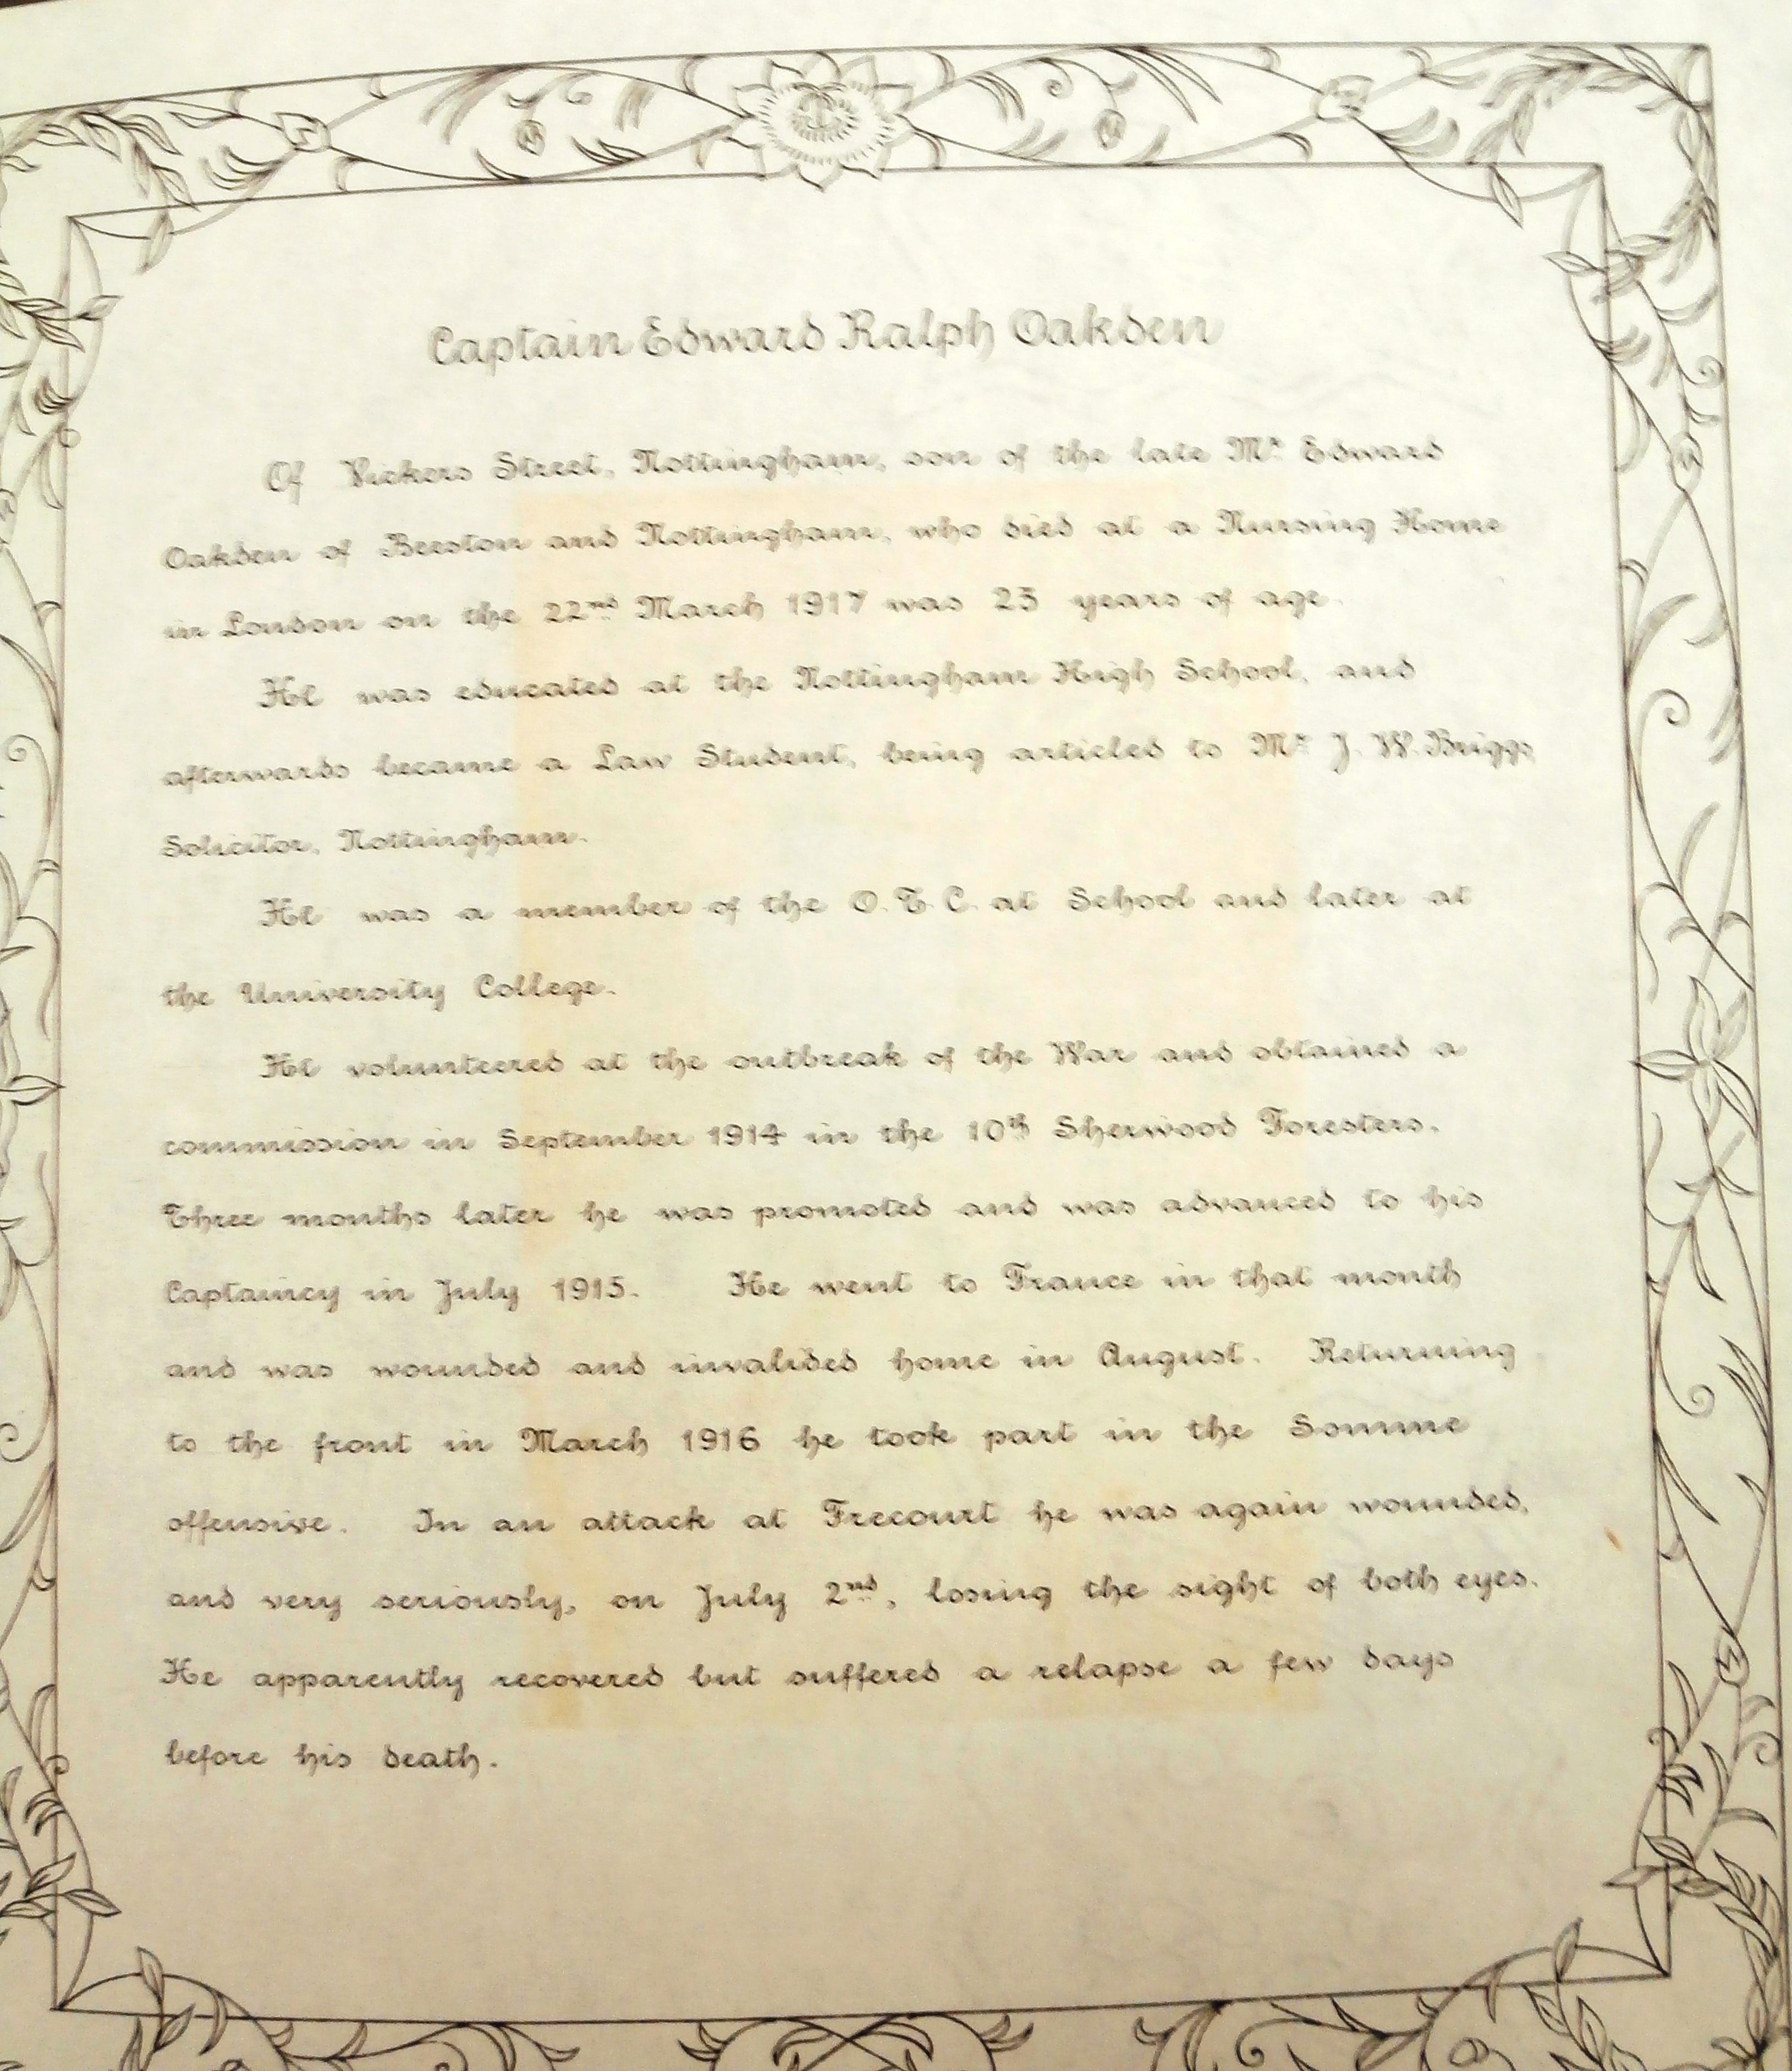 Captain Edward Ralph Oakden
Of Vickers Street, Nottingham, son of the late Mr. Edward
Oakden of Beeston and Nottingham, who died at a Nursing Home
in London on the 22nd March 1917 was 23 years of age.
He was educated at the Nottingham High School, and
afterwards became a Law Student, being articled to Mr. J. W. Briggs,
Solicitor, Nottingham.
He was a member of the O.T.C. at School and later at
the University College.
He volunteered at the outbreak of the War and obtained a
commission in September 1914 in the 10th Sherwood Foresters.
Three months later he was promoted and was advanced to his
Captaincy in July 1915. He went to France in that month
and was wounded and invalided home in August. Returning
to the front in March 1916 he took part in the Somme
offensive. In an attack at Frecourt he was again wounded,
and very seriously, on July 2nd, losing the sight of both eyes.
He apparently recovered but suffered a relapse a few days
before his death.